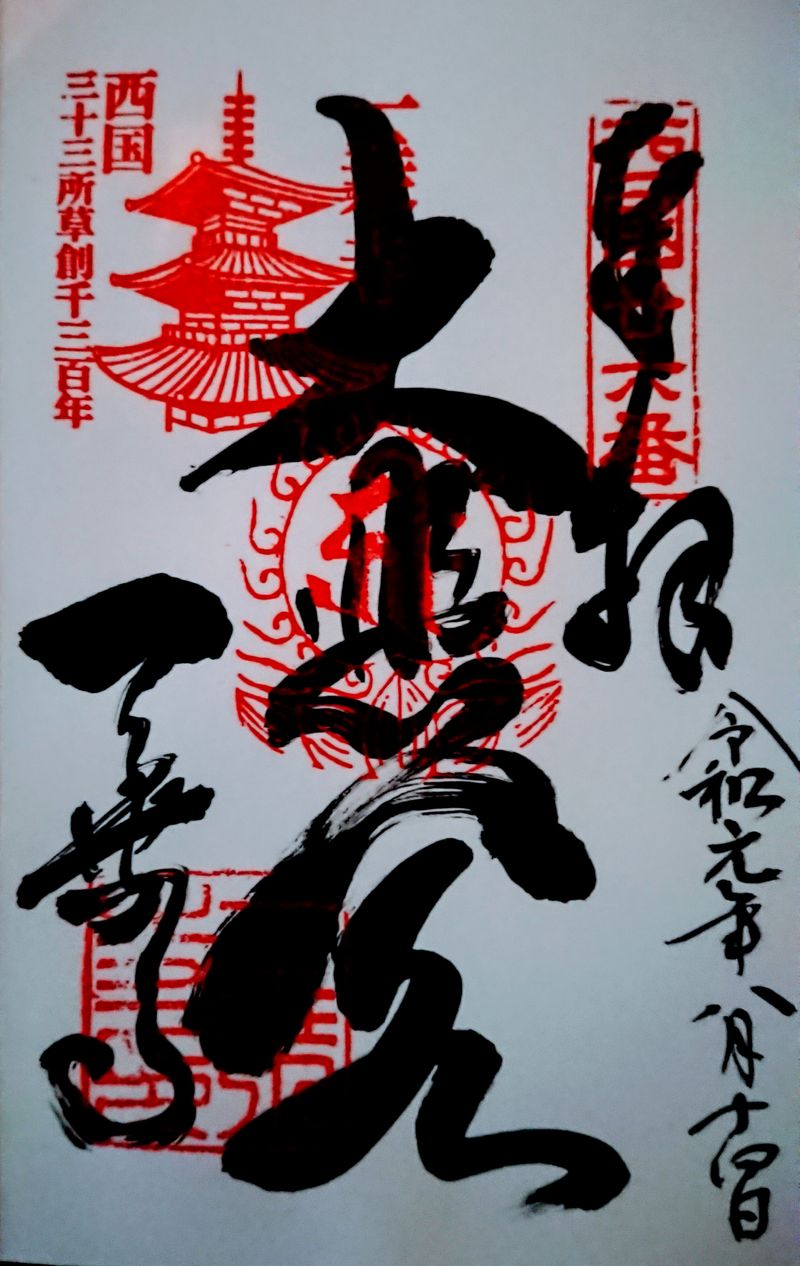 西國廿六番
奉拝
令和元年八月十四日
大悲閣
一乗寺
西国
三十三所草創千三百年